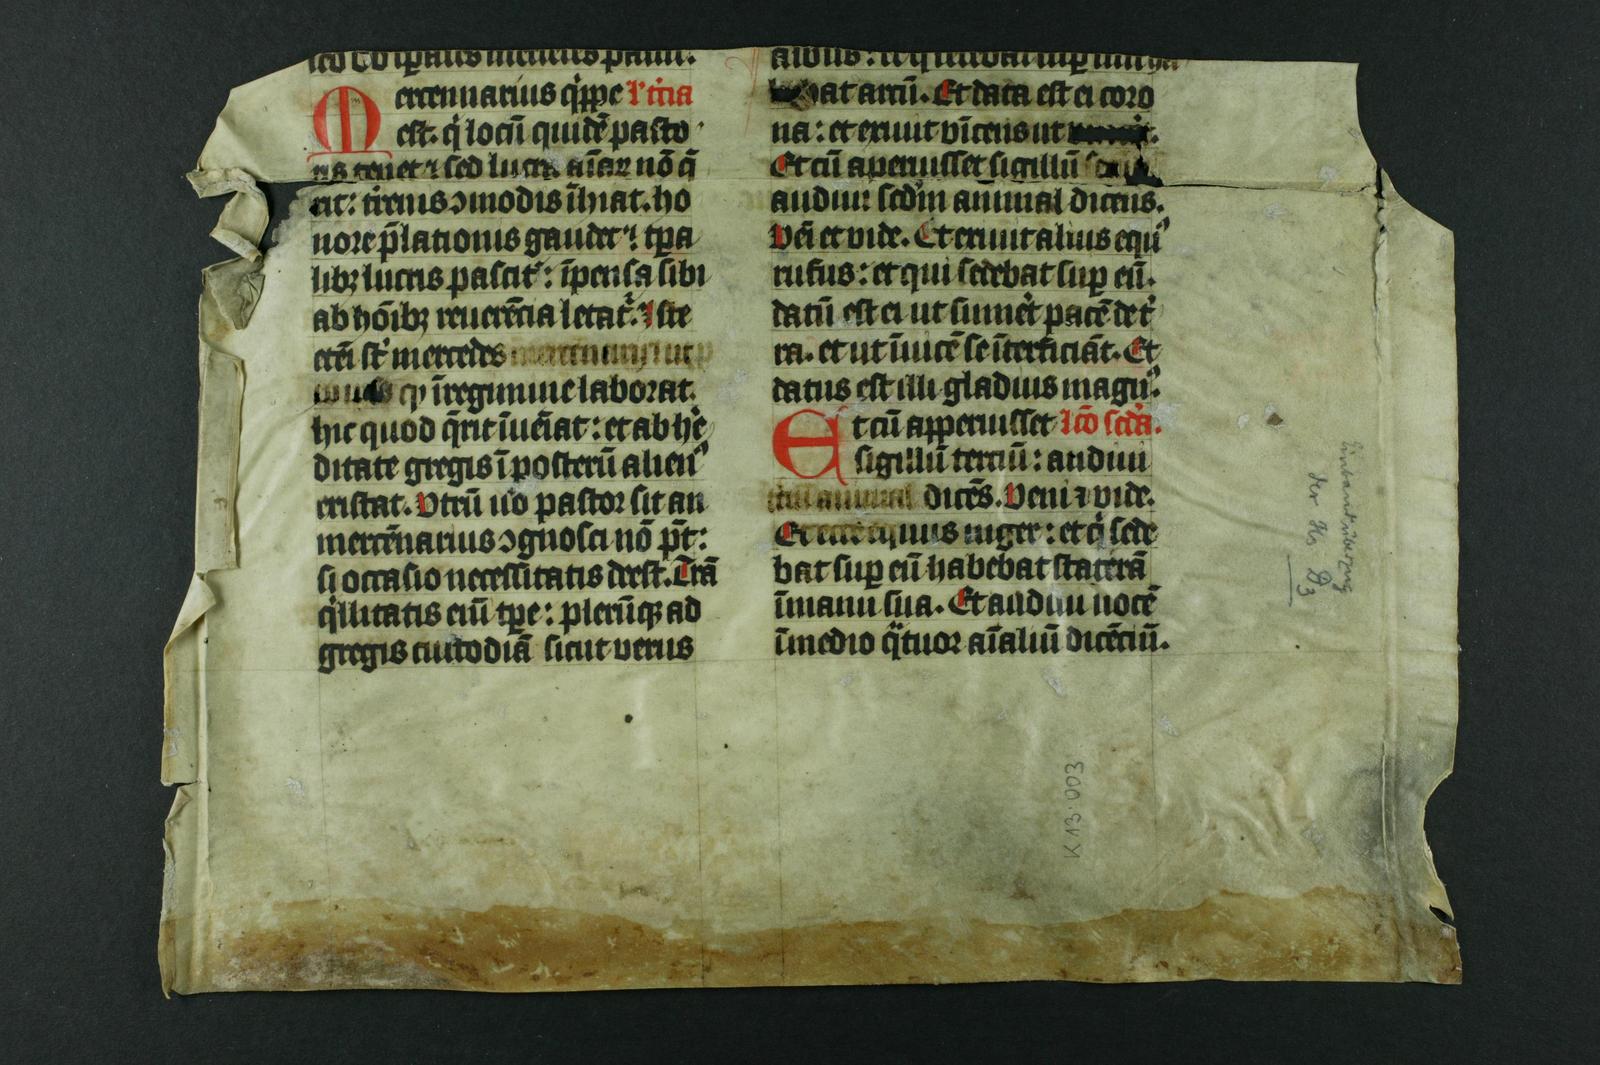 ercennarius q̇ppe l'tcia
M est. q̇ locū quidē pasto
ris tenet ⁊ sed lucra aīaꝝ nō q̄
rit: t̄renis ɔmodis īhiat. ho
nore p̄lationis gaudet ⁊ tꝑa
libꝫ lucris pascit᷑: īpensa sibi
ab hōībꝫ reuerētia letat᷑. Iste
etēī st̄ mercedes mercennarii ut p
qꝫ ī regimine laborat.
hic quod q̄rit īueīat: et ab he
ditate gregis ī posterū alienꝰ
existat. Utrū u̇o pastor sit an
mercēnarius ɔgnosci nō p̄t:
si occasio necessitatis deest. Trā
q̇llitatis eīū tꝑe: plerūqꝫ ad
gregis custodiā sicut verus
albus: et qui sedebat suꝑ
bat arcū. Et data est ei coro
na: et exiuit vīcens ut
Et cū aperuisset sigillū
audiui scd̄m animal dicens.
Veī et vide. Et exiuit alius equꝰ
rufus: et qui sedebat suꝑ eū.
datū est ei ut sumet̄ pacē de t̄
ra. et ut īuicē se īterficiāt. Et
datus est illi gladius magnꝰ.
Et cū apperuisset lc̄o scd̄a.
sigillū terciū: audiui
animal dicēs. Veni ⁊ vide.
Et ecce equus niger: et q̇ sede
bat suꝑ eū habebat staterā
ī manu sua. Et audiui uocē
ī medio q̄tuor aīaliū dicēciū.
Einbandüberzug
der Hs D3
K 13.003